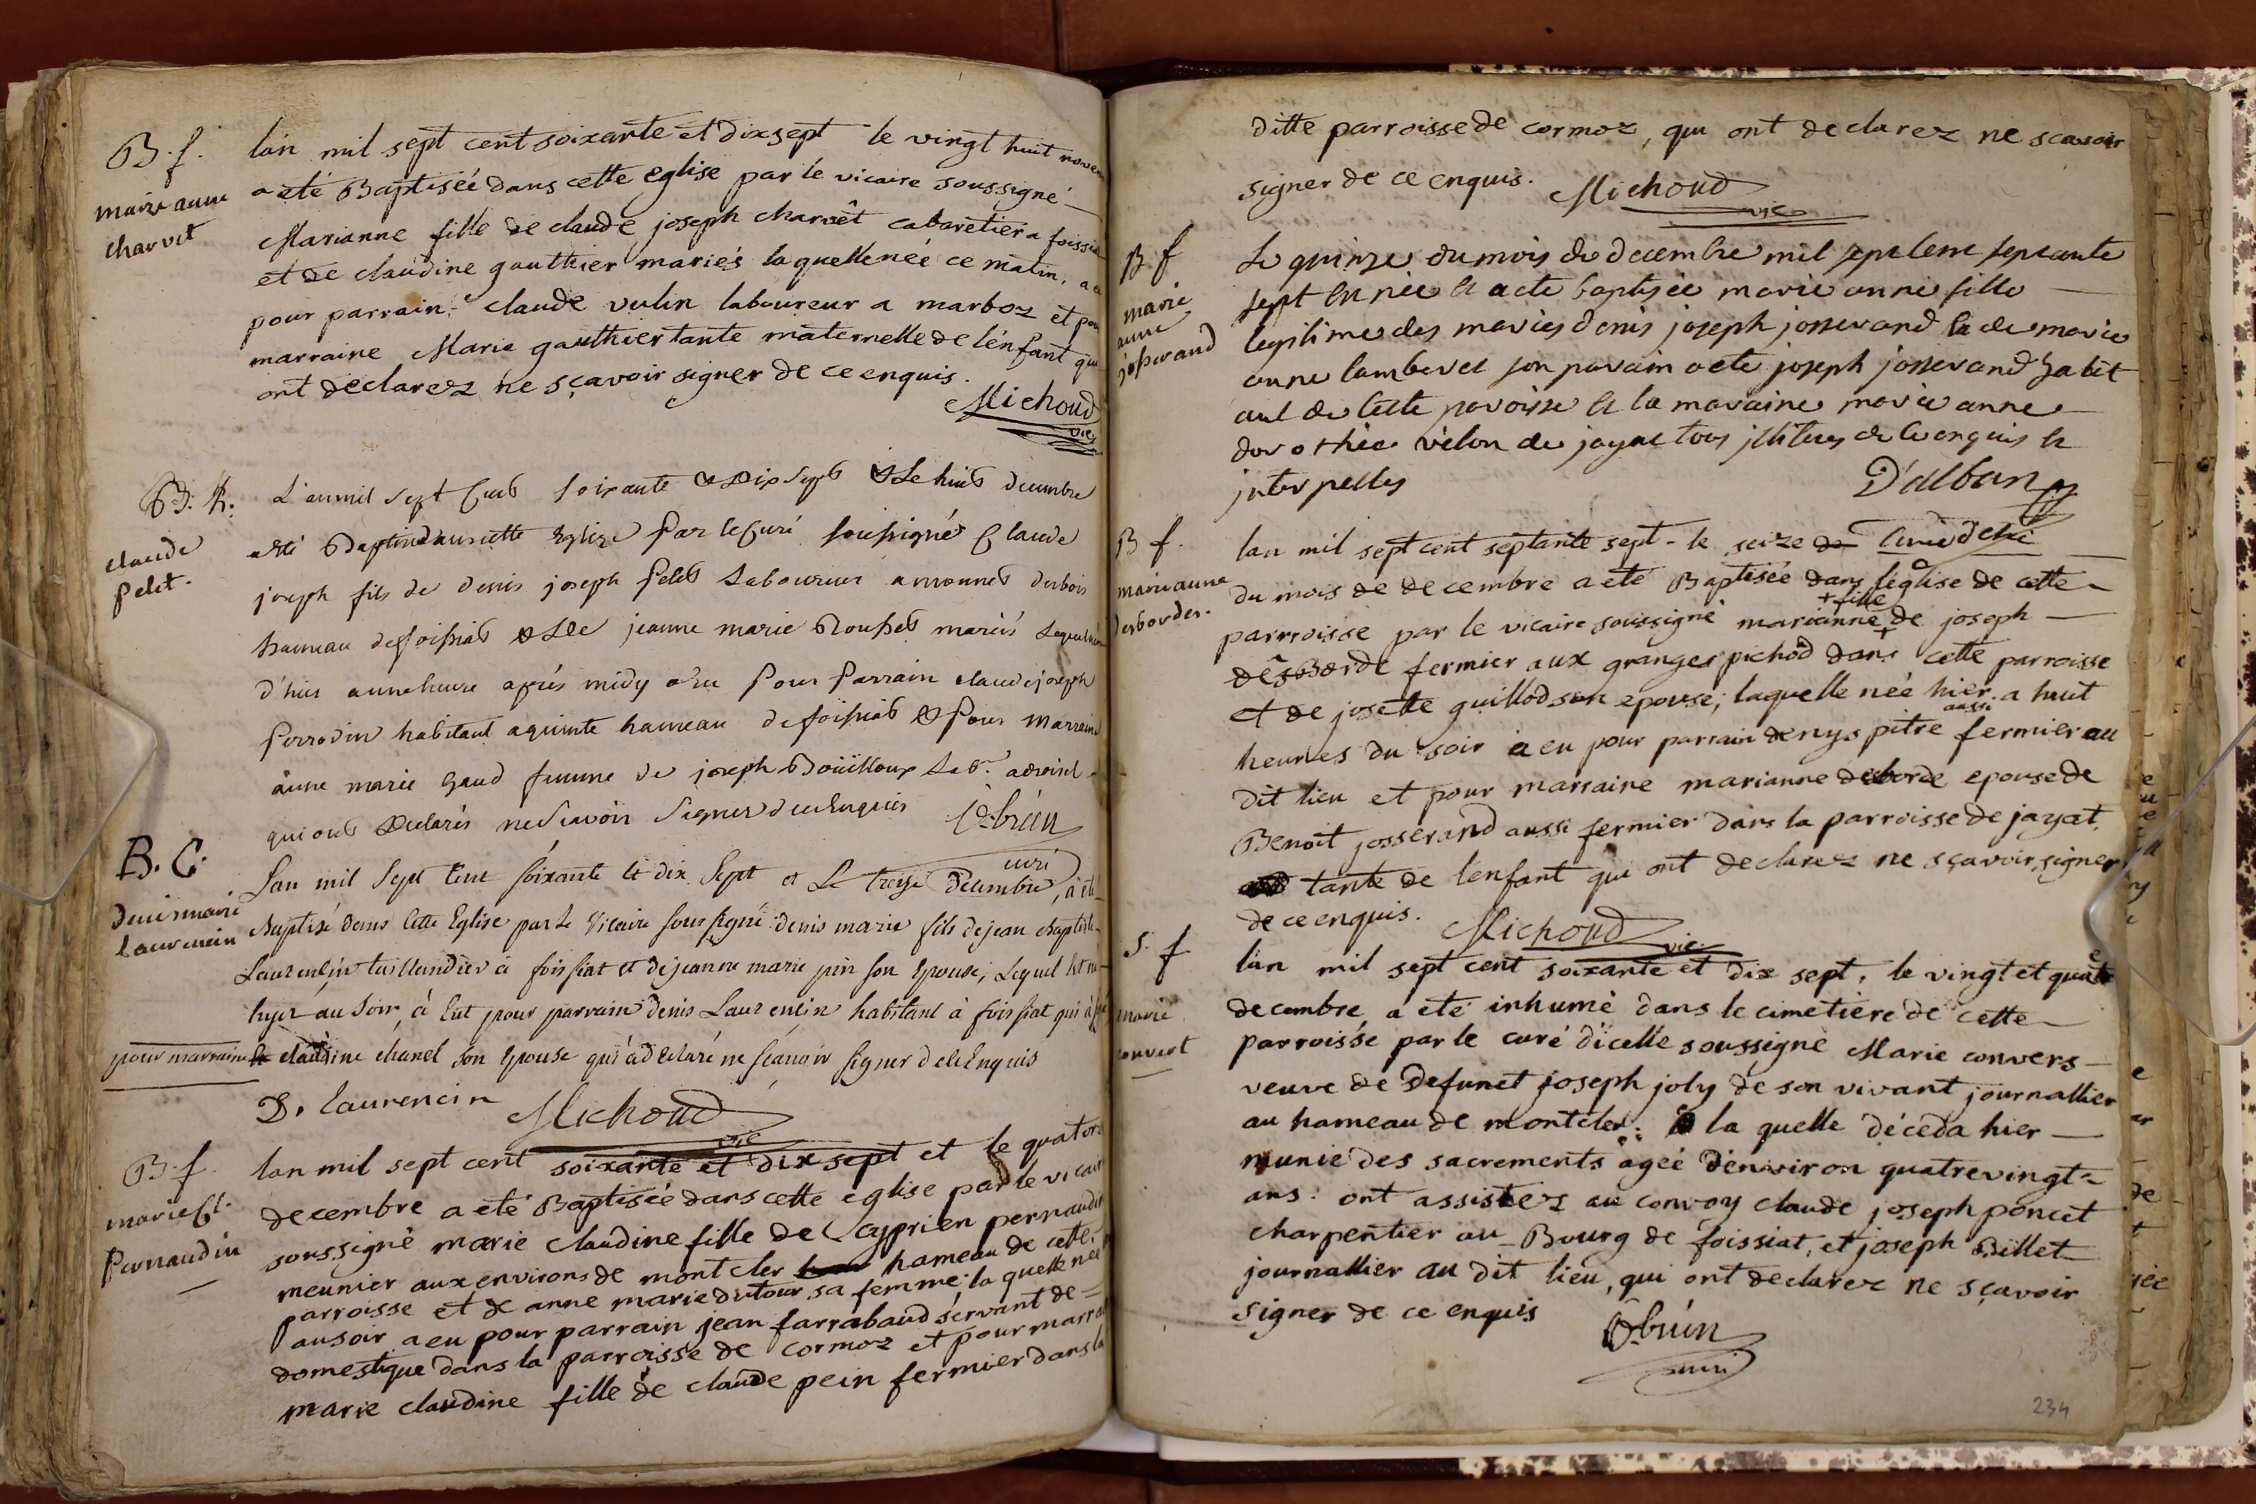 B. f.
marie anne
charvet
lan mil sept cent soixante et dix sept le vingt huit novem
a eté Baptiseé dans cette eglise par le vicaire soussigné
Marianne fille de claude joseph charvêt cabaretier a foissia
et de claudine gauthier mariés laquelle neé ce matin, a eu
pour parrain claude vulin laboureur a marboz et pour
marraine Marie gauthier tante maternelle de lénfant qui
ont declarez ne sçavoir signer de ce enquis.
Michoud
vic
claude
pelet.
L'an mil sept Cent soixante & Dix sept & Le huit decembre
a été Baptisé dans cette Eglize Par le Curé soussigné Claude
joseph fils de denis joseph Pelet Laboureur a
hameau de foissiat & De jeanne marie Rousset mariés
d'hier a une heure aprés midy a eu Pour Parrain claude joseph
Perrodin habitant a quinte hameau de foissiat & Pour marraine
anne marie Gaud femme de joseph Boüilloux Labr.
qui ont Declarés ne Scavoir Signer de ce Enquis
Debrun
curé
B. C.
denis marie
laurencin
Lan mil Sept Cent soixante et dix Sept et Le treize Decembre, a été
Baptisé dans Cette Eglise par Le Vicaire soussigné denis marie fils de jean baptiste
Laurencin taillandier à foissiat et de jeanne marie pin son Epouse, Lequel Est né
hyer au Soir, à Eut pour parrain denis Laurencin habitant à foissiat qui à signé
pour marraine claudine chanel son Epouse qui à déclaré ne scavoir signer de ce Enquis
D. laurencin Michoud
vic
B. f.
marie Cl.
Pernaudin
lan mil sept cent soixante et dix sept et le quatorze
decembre a eté Baptiseé dans cette eglise par le vicaire
soussigné marie claudine fille de Cyprien pernaudin
meunier aux environs de montcler hameau de cette
parroisse et de anne marie dutour sa femme laquelle neé
au soir a eu pour parrain jean farrabaud servant de
domestique dans la parroisse de cormoz et pour marraine
marie claudine fille de claude pein fermier dans la
ditte parroisse de cormoz, qui ont declarez ne scavoir
signer de ce enquis. Michoud
vic
B f
marie
anne
josserand
Le quinze du mois de decembre mil sept cent septante
sept En née Et a ete baptisée marie anne fille
legitime des maries denis joseph josserand Et de marie
anne lamberet son parain a ete joseph josserand habit
ant de cette paroisse Et la maraine marie anne
dorothée velon de jayat tous jlliteres de ce enquis Et
jnterpelles D'alban
Curé de
B f.
marie anne
desbordes.
lan mil sept cent septante sept - le seize
du mois de decembre a eté Baptiseé dans l'église de cette
parroisse par le vicaire soussigné marianne + fille de joseph
desBorde fermier aux granges pichod dans cette parroisse
et de josette guillod son epouse; laquelle neé hier a huit
heures du soir a eu pour parrain denys pitre aussi fermier au
dit lieu et pour marraine marianne desborde epouse de
Benoit josserand aussi fermier dans la parroisse de jayat,
tante de lenfant qui ont declarez ne sçavoir signer
de ce enquis. Michoud
vic
S. f
marie
convert
lan mil sept cent soixante et dix sept, le vingt et quatre
decembre a eté inhumé dans le cimetiere de cette
parroisse par le curé dicelle soussigné Marie convers
veuve de Defunct joseph joly de son vivant journallier
au hameau de montcler: la quelle déceda hier
munie des sacrements ageé dénviron quatre vingt
ans: ont assistez au convoy claude joseph poncet
charpentier au Bourg de foissiat, et joseph Billet
journallier au dit lieu, qui ont declarez ne sçavoir
signer de ce enquis Debrun
curé
234